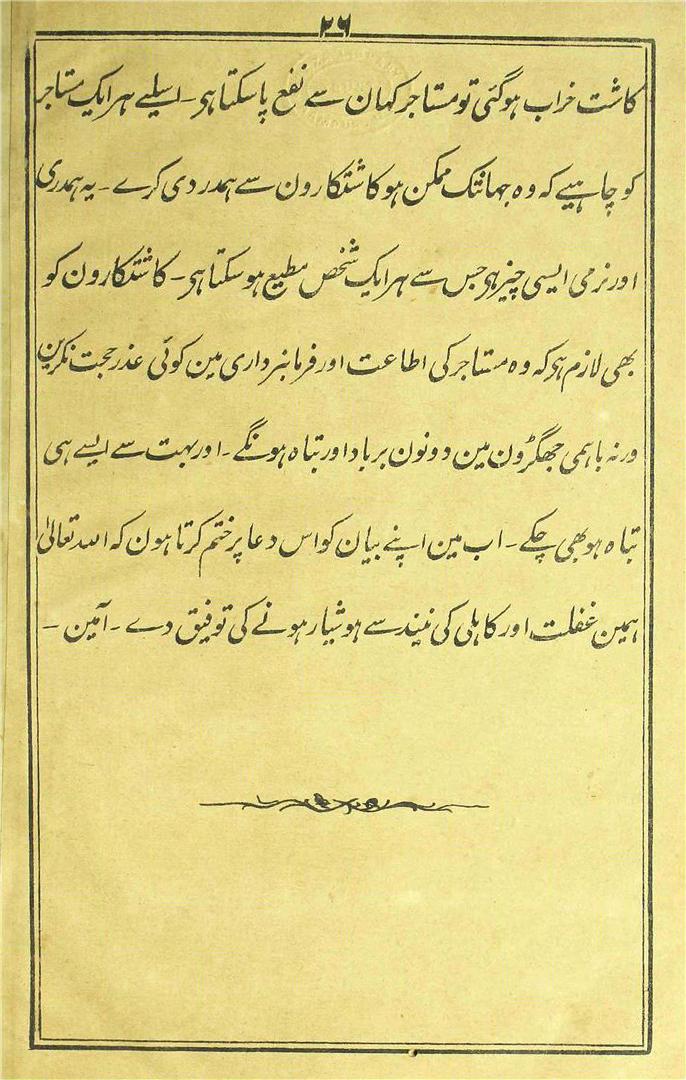 ۲۶
کاشت خراب ہوگئی تو مستاجر کہان سے نفع پاسکتا ہی۔ اسلیے ہر ایک مستاجر
کو چاہیے کہ وہ جہانتک ممکن ہو کاشتکارون سے ہمدردی کرے۔ یہ ہمدری
اور نرمی ایسی چیز ہی جس سے ہر ایک شخص مطیع ہوسکتا ہی۔ کاشتکارون کو
بھی لازم ہی کہ وہ مستاجر کی اطاعت اور فرمانبرداری مین کوئی عذر حجت نکرین
ورنہ باہمی جھگڑون مین دونون برباد اور تباہ ہونگے۔ اور بہت سے ایسے ہی
تباہ ہو بھی چکے۔ اب مین اپنے بیان کو اس دعا پر ختم کرتا ہون کہ اللہ تعالیٰ
ہمین غفلت اور کاہلی کی نیند سے ہوشیار ہونے کی توفیق دے۔ آمین۔